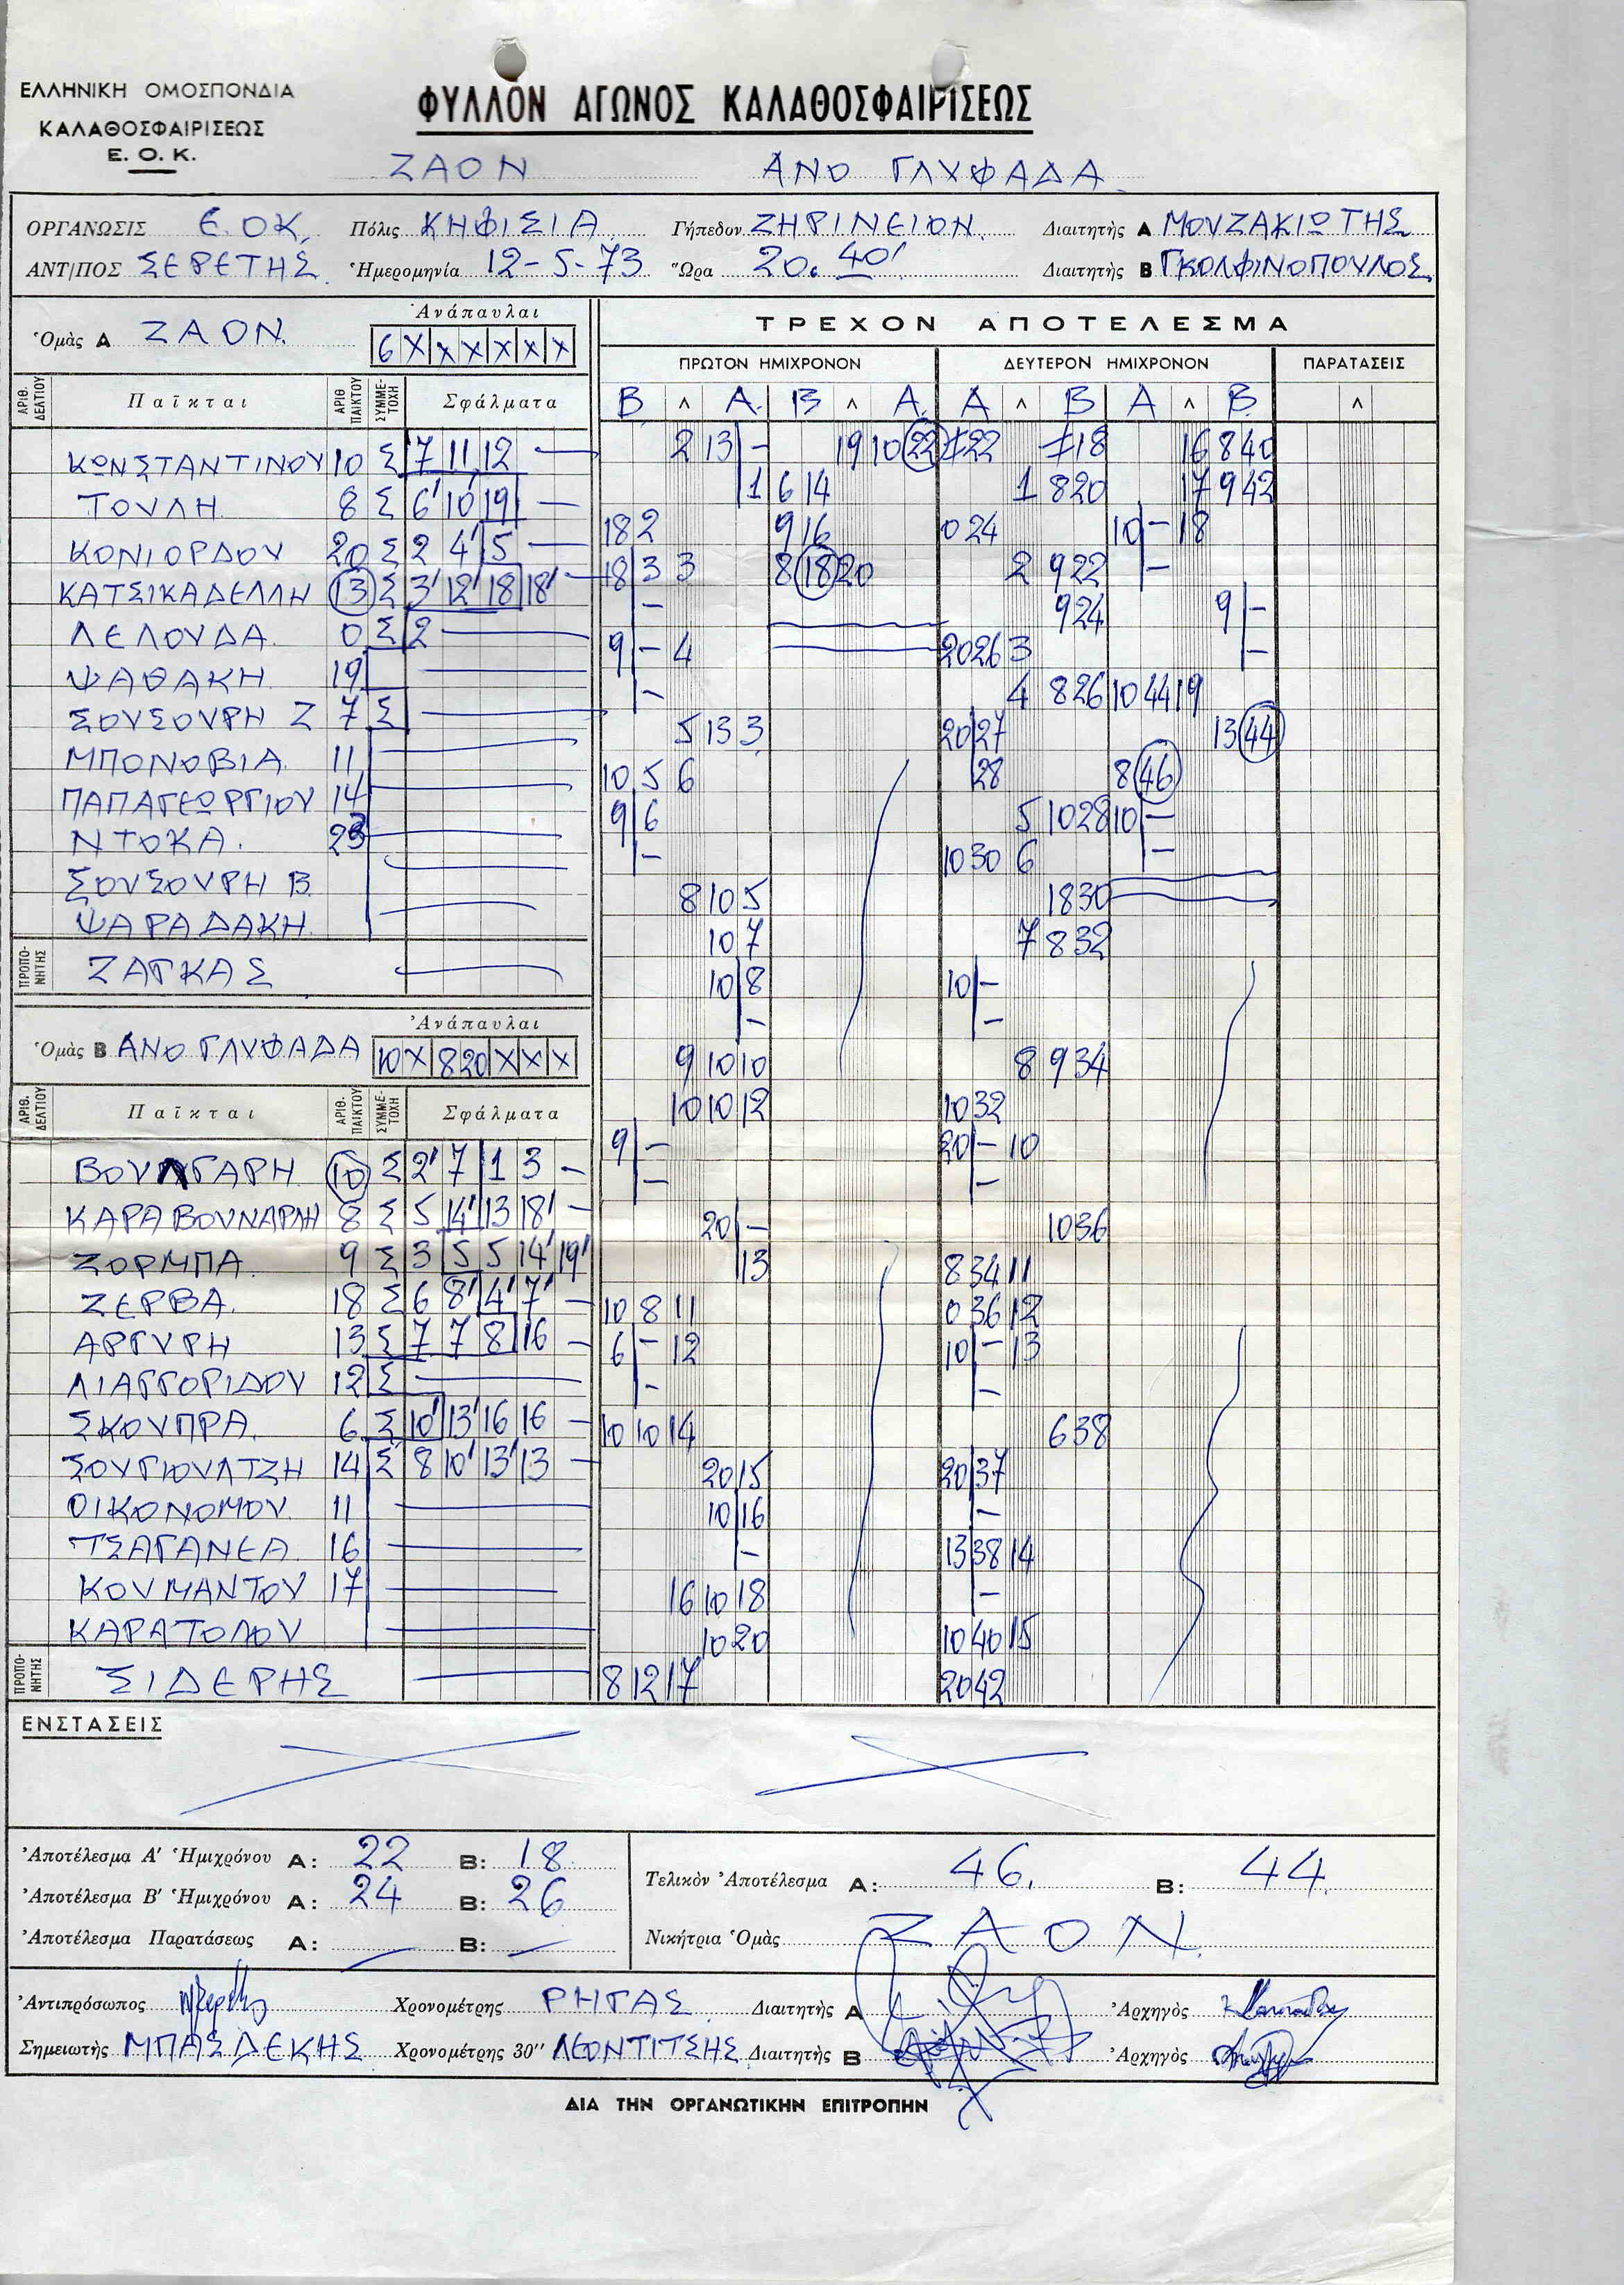 ΕΛΛΗΝΙΚΗ ΟΜΟΣΠΟΝΔΙΑ
ΚΑΛΑΘΟΣΦΑΙΡΙΣΕΩΣ
Ε. Ο. Κ.
ΦΥΛΛΟΝ ΑΓΩΝΟΣ ΚΑΛΑΘΟΣΦΑΙΡΙΣΕΩΣ
ΖΑΟΝ ΑΝΟ ΓΛΥΦΑΔΑ
ΟΡΓΑΝΩΣΙΣ Ε.ΟΚ. Πόλις ΚΗΦΙΣΙΑ Γήπεδον ΖΗΡΙΝΕΙΟΝ Διαιτητὴς Α ΜΟΥΖΑΚΙΩΤΗΣ
ΑΝΤ|ΠΟΣ ΣΕΡΕΤΗΣ Ἡμερομηνία 12-5-73 Ὥρα 20.40' Διαιτητὴς Β ΓΚΟΛΦΙΝΟΠΟΥΛΟΣ
Ὁμὰς Α ΖΑΟΝ. Ἀνάπαυλαι
6 X X X X X X
ΑΡΙΘ. ΔΕΛΤΙΟΥ Παῖκται ΑΡΙΘ ΠΑΙΚΤΟΥ ΣΥΜΜΕΤΟΧΗ Σφάλματα
ΚΩΝΣΤΑΝΤΙΝΟΥ 10 Σ 7 11 12 —
ΤΟΥΛΗ 8 Σ 6' 10' 19 —
ΚΟΝΙΟΡΔΟΥ 20 Σ 2 4' 5 —
ΚΑΤΣΙΚΑΔΕΛΛΗ 13 Σ 3' 12' 18 18' —
ΛΕΛΟΥΔΑ 0 Σ 2 —
ΨΑΘΑΚΗ 19 —
ΣΟΥΣΟΥΡΗ Ζ 7 Σ —
ΜΠΟΝΟΒΙΑ 11 —
ΠΑΠΑΓΕΩΡΓΙΟΥ 14 —
ΝΤΟΚΑ. —
ΣΟΥΣΟΥΡΗ Β —
ΨΑΡΑΔΑΚΗ —
ΠΡΟΠΟΝΗΤΗΣ ΖΑΓΚΑΣ —
Ὁμὰς Β ΑΝΟ ΓΛΥΦΑΔΑ Ἀνάπαυλαι
10 X 8 20 X X X
ΑΡΙΘ. ΔΕΛΤΙΟΥ Παῖκται ΑΡΙΘ. ΠΑΙΚΤΟΥ ΣΥΜΜΕΤΟΧΗ Σφάλματα
ΒΟΥΛΓΑΡΗ 10 Σ 2' 7 1 3 —
ΚΑΡΑΒΟΥΝΑΡΛΗ 8 Σ 5 14' 13 18' —
ΖΟΡΜΠΑ 9 Σ 3 5 5 14' 19'
ΖΕΡΒΑ 18 Σ 6 8' 4' 7' —
ΑΡΓΥΡΗ 13 Σ 7 7 8 16 —
ΛΙΑΓΓΟΡΙΔΟΥ 12 Σ —
ΣΚΟΥΠΡΑ 6 Σ 10' 13' 16 16 —
ΣΟΥΓΙΟΥΛΤΖΗ 14 Σ 8 10' 13' 13 —
ΟΙΚΟΝΟΜΟΥ 11 —
ΤΣΑΓΑΝΕΑ 16 —
ΚΟΥΜΑΝΤΟΥ 17 —
ΚΑΡΑΤΟΛΟΥ —
ΠΡΟΠΟΝΗΤΗΣ ΣΙΔΕΡΗΣ —
ΤΡΕΧΟΝ ΑΠΟΤΕΛΕΣΜΑ
ΠΡΩΤΟΝ ΗΜΙΧΡΟΝΟΝ ΔΕΥΤΕΡΟΝ ΗΜΙΧΡΟΝΟΝ ΠΑΡΑΤΑΣΕΙΣ
Β Λ Α. Β Λ Α. Α Λ Β Α Λ Β. Λ
2 13 — 19 10 22 22 18 16 8 40
1 6 14 1 8 20 17 9 42
18 2 9 16 0 24 10 — 18
18 3 3 8 18 20 2 9 22 —
— 9 24 9 —
9 — 4 20 26 3 —
— 4 8 26 10 44 19
5 13 3 20 27 13 44
10 5 6 28 8 46
9 6 5 10 28 10 —
— 10 30 6 —
8 10 5 18 30
10 7 7 8 32
10 8 10 —
— —
9 10 10 8 9 34
10 10 12 10 32
9 — 20 — 10
— —
20 — 10 36
13 8 34 11
10 8 11 0 36 12
6 — 12 10 — 13
— —
10 10 14 6 38
20 15 20 37
10 16 —
— 13 38 14
16 10 18 —
10 20 10 40 15
8 12 17 20 42
ΕΝΣΤΑΣΕΙΣ
Ἀποτέλεσμα Α' Ἡμιχρόνου Α: 22 Β: 18
Ἀποτέλεσμα Β' Ἡμιχρόνου Α: 24 Β: 26
Ἀποτέλεσμα Παρατάσεως Α: — Β: —
Τελικὸν Ἀποτέλεσμα Α: 46. Β: 44.
Νικήτρια Ὁμὰς ΖΑΟΝ.
Ἀντιπρόσωπος Χρονομέτρης ΡΗΓΑΣ Διαιτητὴς Α Ἀρχηγὸς
Σημειωτὴς ΜΠΑΣΔΕΚΗΣ Χρονομέτρης 30'' ΛΕΟΝΤΙΤΣΗΣ Διαιτητὴς Β Ἀρχηγὸς
ΔΙΑ ΤΗΝ ΟΡΓΑΝΩΤΙΚΗΝ ΕΠΙΤΡΟΠΗΝ